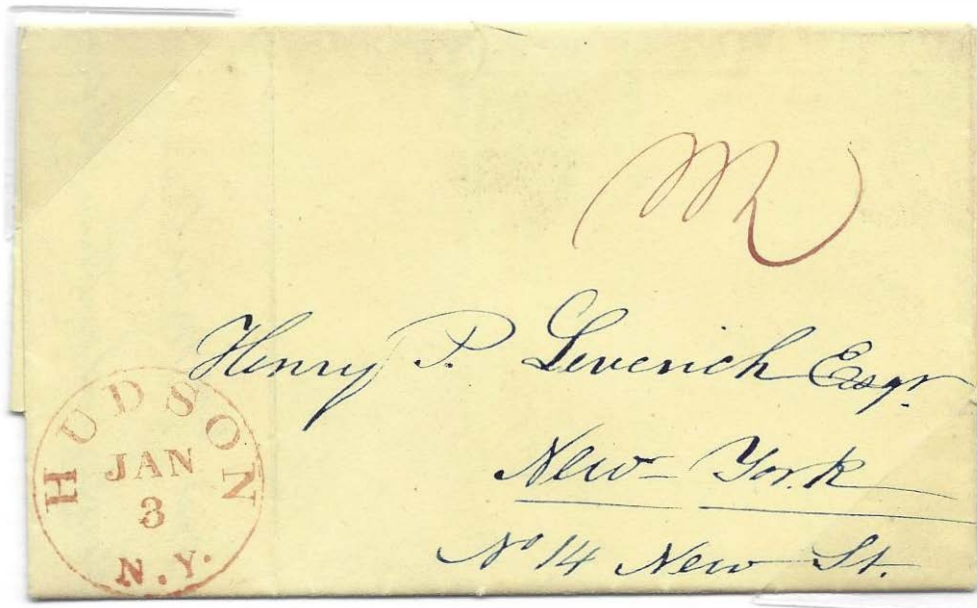 Henry P. Leverich Esqr.
New-York
No 14 New St.
HUDSON
JAN
3
N.Y.